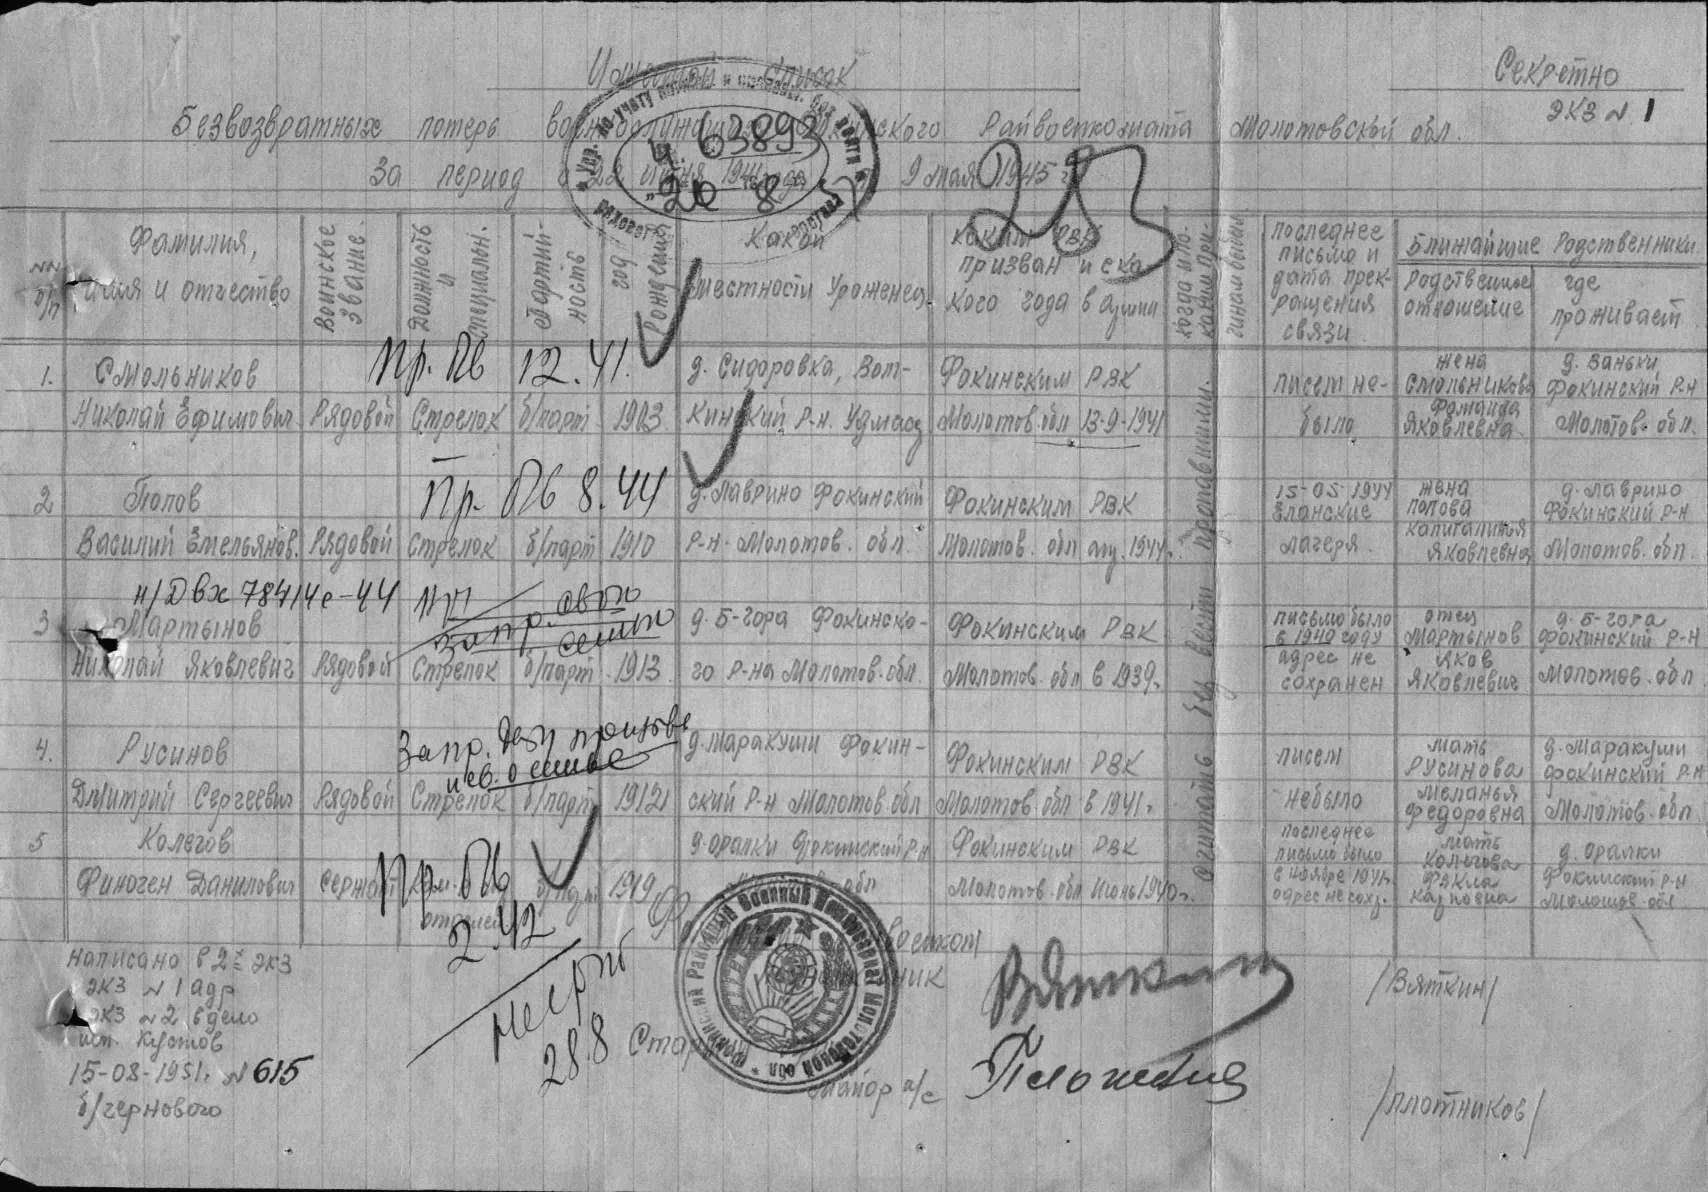 Именной список
Секретно
экз № 1
Безвозвратных потерь Райвоенкомата Молотовской обл.
за период с 22 июня 1941 года 9 мая 1945
ч. 63893
253
№№ п/п
Фамилия, имя и отчество
Воинское звание
Должность и специальн.
Партийность
год рождения
Какой местности уроженец
каким РВК призван и с какого года в армии
когда и по какой причинам выбыл
последнее письмо и дата прекращения связи
Ближайшие Родственники
Родственное отношение
где проживает
Считать без вести пропавшими.
1. Смольников Николай Ефимович
Рядовой
Стрелок
б/парт
1903
д. Сидоровка, Вот-
кинский Р-н. Удмасср
Фокинским РВК
Молотов. обл 13-9-1941
писем не-
было
жена
Смольникова
Яковлевна
д. Ваньки
Фокинский Р-н
Молотов. обл.
Пр. Пв 12.41.
2 Попов
Василий Емельянов.
Рядовой
Стрелок
б/парт
1910
д. Лаврино Фокинский
Р-н. Молотов. обл.
Фокинским РВК
Молотов. обл 1944г.
15-05-1944
Еланские
лагеря.
жена
Попова
Капиталина
Яковлевна
д. Лаврино
Фокинский Р-н
Молотов. обл.
Пр. Пв 8.44
3 Мартынов
Николай Яковлевич
Рядовой
Стрелок
б/парт
1913
д. Б-гора Фокинско-
го Р-на Молотов. обл.
Фокинским РВК
Молотов. обл в 1939г.
письмо было
в 1940 году
адрес не
сохранен
отец
Мартынов
Яков
Яковлевич
д. Б-гора
Фокинский Р-н
Молотов. обл
4. Русинов
Дмитрий Сергеевич
Рядовой
Стрелок
б/парт
1912
д. Маракуши Фокин-
ский Р-н Молотов. обл
Фокинским РВК
Молотов. обл в 1941г
писем
небыло
мать
Русинова
Меланья
Федоровна
д. Маракуши
Фокинский Р-н
Молотов. обл
5 Колегов
Финоген Данилович
Сержант
б/парт
1919
д. Оралки Фокинский Р-н
обл
Фокинским РВК
Молотов. обл Июнь 1940г.
последнее
письмо было
в ноябре 1941г.
адрес не сохр.
мать
Колегова
Фекла
Карповна
д. Оралки
Фокинский Р-н
Молотов. обл
Пр. Пв
2.42
28.8
Написано в 2х экз
экз № 1 адр
экз № 2 в дело
исп. Кустов
15-08-1951г. № 615
б/чернового
Фокинский Районный Военный Комиссариат Молотовской обл
/Вяткин/
майор а/с
/Плотников/